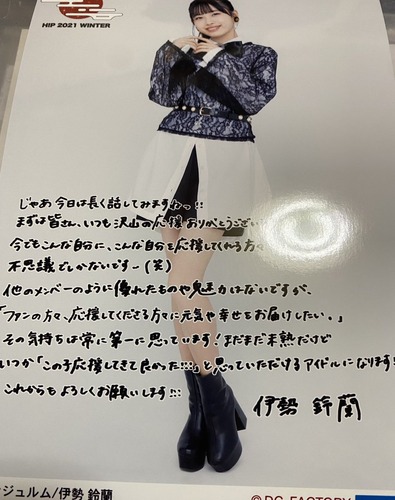 HIP 2021 WINTER
じゃあ今日は長く話してみますねっ!!
まずは皆さん、いつも沢山の応援ありがとうござい
今でもこんな自分に、こんな自分を応援してくれる方
不思議でしかないですー(笑)
他のメンバーのように優れたものや魅力はないですが、
「ファンの方々、応援してくださる方々に元気や幸せをお届けしたい。」
その気持ちは常に第一に思っています!まだまだ未熟だけど
いつか「この子応援してきて良かった…。」と思っていただけるアイドルになります!
これからもよろしくお願いします!!!
伊勢 鈴蘭
ンジュルム/伊勢 鈴蘭
©DC FACTORY